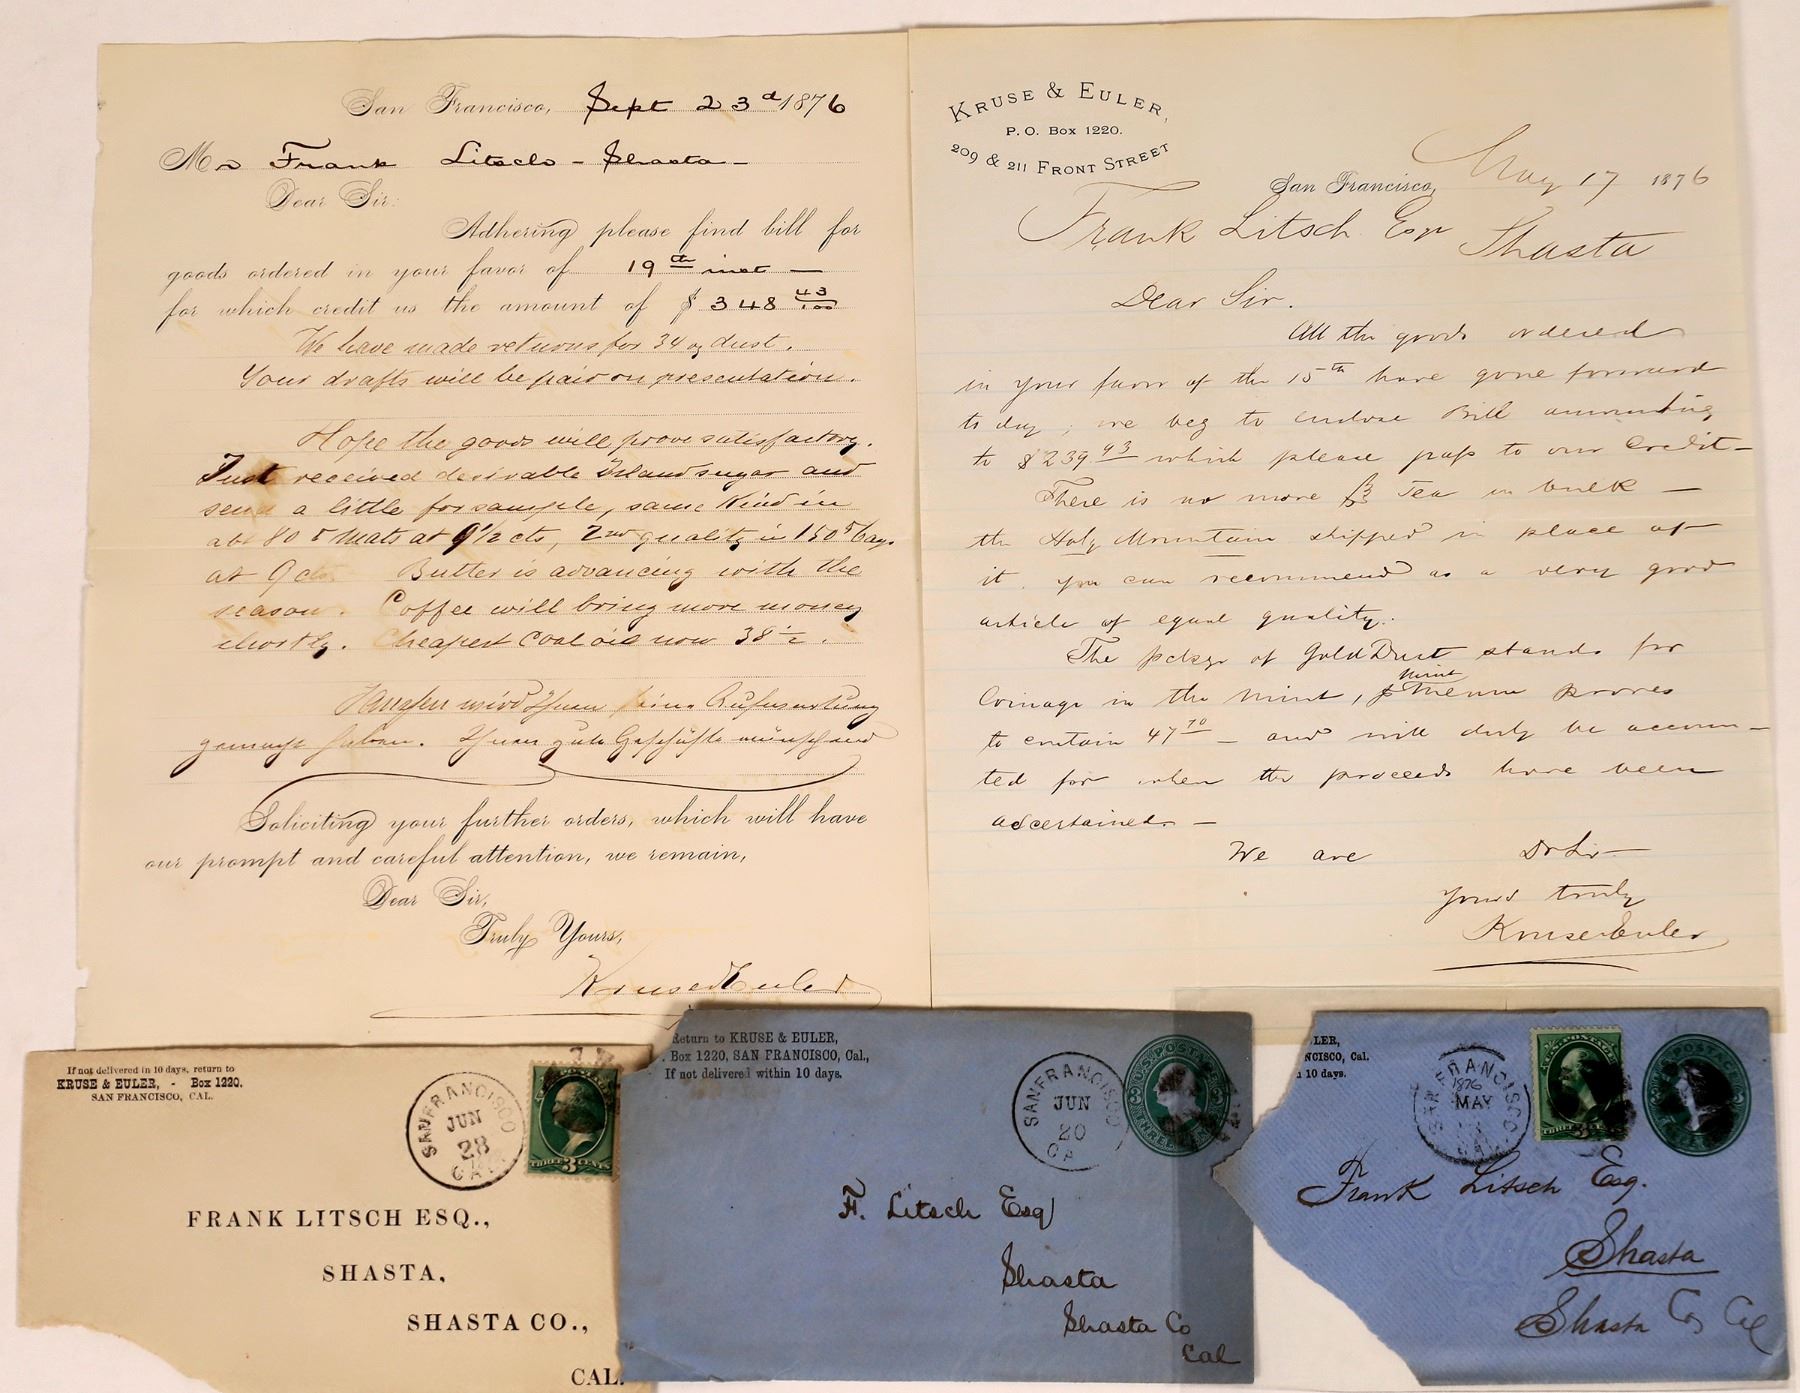 San Francisco, Sept 23d 1876
Mr Frank Litsch - Shasta -
Dear Sir:
Adhering please find bill for
goods ordered in your favor of 19th inst —
for which credit us the amount of $ 348 43/100
We have made returns for 34 oz dust.
Your drafts will be paid on presentation.
Hope the goods will prove satisfactory.
Just received desirable Island sugar and
send a little for sample, same kind in
abt 80 Mats at 9 1/2 cts, 2nd quality in 150 bags
at 9 cts Butter is advancing with the
season. Coffee will bring more money
shortly. Cheapest Coal oil now 38 1/2.
wird Ihnen seine Aufwartung
gemacht haben. Ihnen gute Geschäfte wünschend
Soliciting your further orders, which will have
our prompt and careful attention, we remain,
Dear Sir,
Truly Yours,
Kruse & Euler
KRUSE & EULER,
P. O. Box 1220.
209 & 211 FRONT STREET
San Francisco, May 17 1876
Frank Litsch Esqr Shasta
Dear Sir.
All the goods ordered
in your favor of the 15th have gone forward
to day; we beg to enclose Bill amounting
to $239 43 which please pass to our Credit —
There is no more Tea in bulk —
the Holy Mountain shipped in place of
it. you can recommend as a very good
article of equal quality.
The pckge of Gold Dust stands for
Coinage in the Mint, Mint
to contain 47 70 — and will duly be accoun-
ted for when the proceeds have been
ascertained. —
We are Dr Sir —
Yours truly
Kruse & Euler
If not delivered in 10 days, return to
KRUSE & EULER, - Box 1220.
SAN FRANCISCO, CAL.
SAN FRANCISCO
JUN
28
CAL
THREE 3 CENTS
FRANK LITSCH ESQ.,
SHASTA,
SHASTA CO.,
CAL.
Return to KRUSE & EULER,
Box 1220, SAN FRANCISCO, Cal.,
If not delivered within 10 days.
SAN FRANCISCO
JUN
20
CAL
U.S. POSTAGE
THREE CENTS
F. Litsch Esq
Shasta
Shasta Co
Cal
LER,
NCISCO, Cal.
10 days.
SAN FRANCISCO
1876
MAY
CAL
POSTAGE
Frank Litsch Esq.
Shasta
Shasta Co Cal